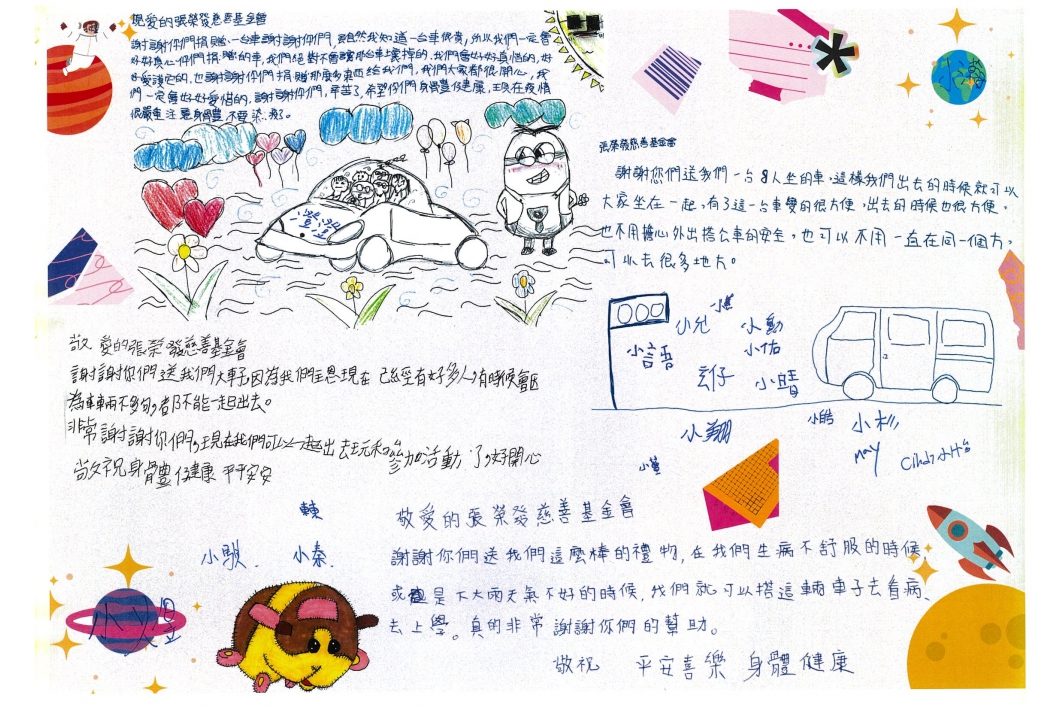 親愛的張榮發慈善基金會
謝謝你們捐贈一台車謝謝你們，雖然我知道一台車很貴，所以我們一定會
好好愛心你們捐贈的車，我們絕對不會讓那台車壞掉的，我們會好好真惜的，好
好愛護它的，也謝謝你們捐贈那麼多東西給我們，我們大家都很開心，我
們一定會好好愛惜的，謝謝你們，辛苦了，希望你們身體健康，現在疫情
很嚴重注意身體，不要染疫了。
張榮發慈善基金會
謝謝您們送我們一台8人坐的車，這樣我們出去的時候就可以
大家坐在一起，有了這一台車變的很方便，出去的時候也很方便，
也不用擔心外出搭公車的安全，也可以不用一直在同一個方，
可以去很多地方。
敬愛的張榮發慈善基金會
謝謝你們送我們大車子，因為我們恩現在已經有好多人，有時候會因
為車輛不夠，都不能一起出去。
非常謝謝你們，現在我們可以一起出去玩和參加活動了，好開心
敬祝身體健康 平平安安
小兒
小勳
小語
小佑
玄仔
小晴
小翔
小皓
小杉
may
Cindy
小萱
小秦
敬愛的張榮發慈善基金會
謝謝你們送我們這麼棒的禮物，在我們生病不舒服的時候，
或是下大雨天氣不好的時候，我們就可以搭這輛車子去看病、
去上學。真的非常謝謝你們的幫助。
敬祝 平安喜樂 身體健康